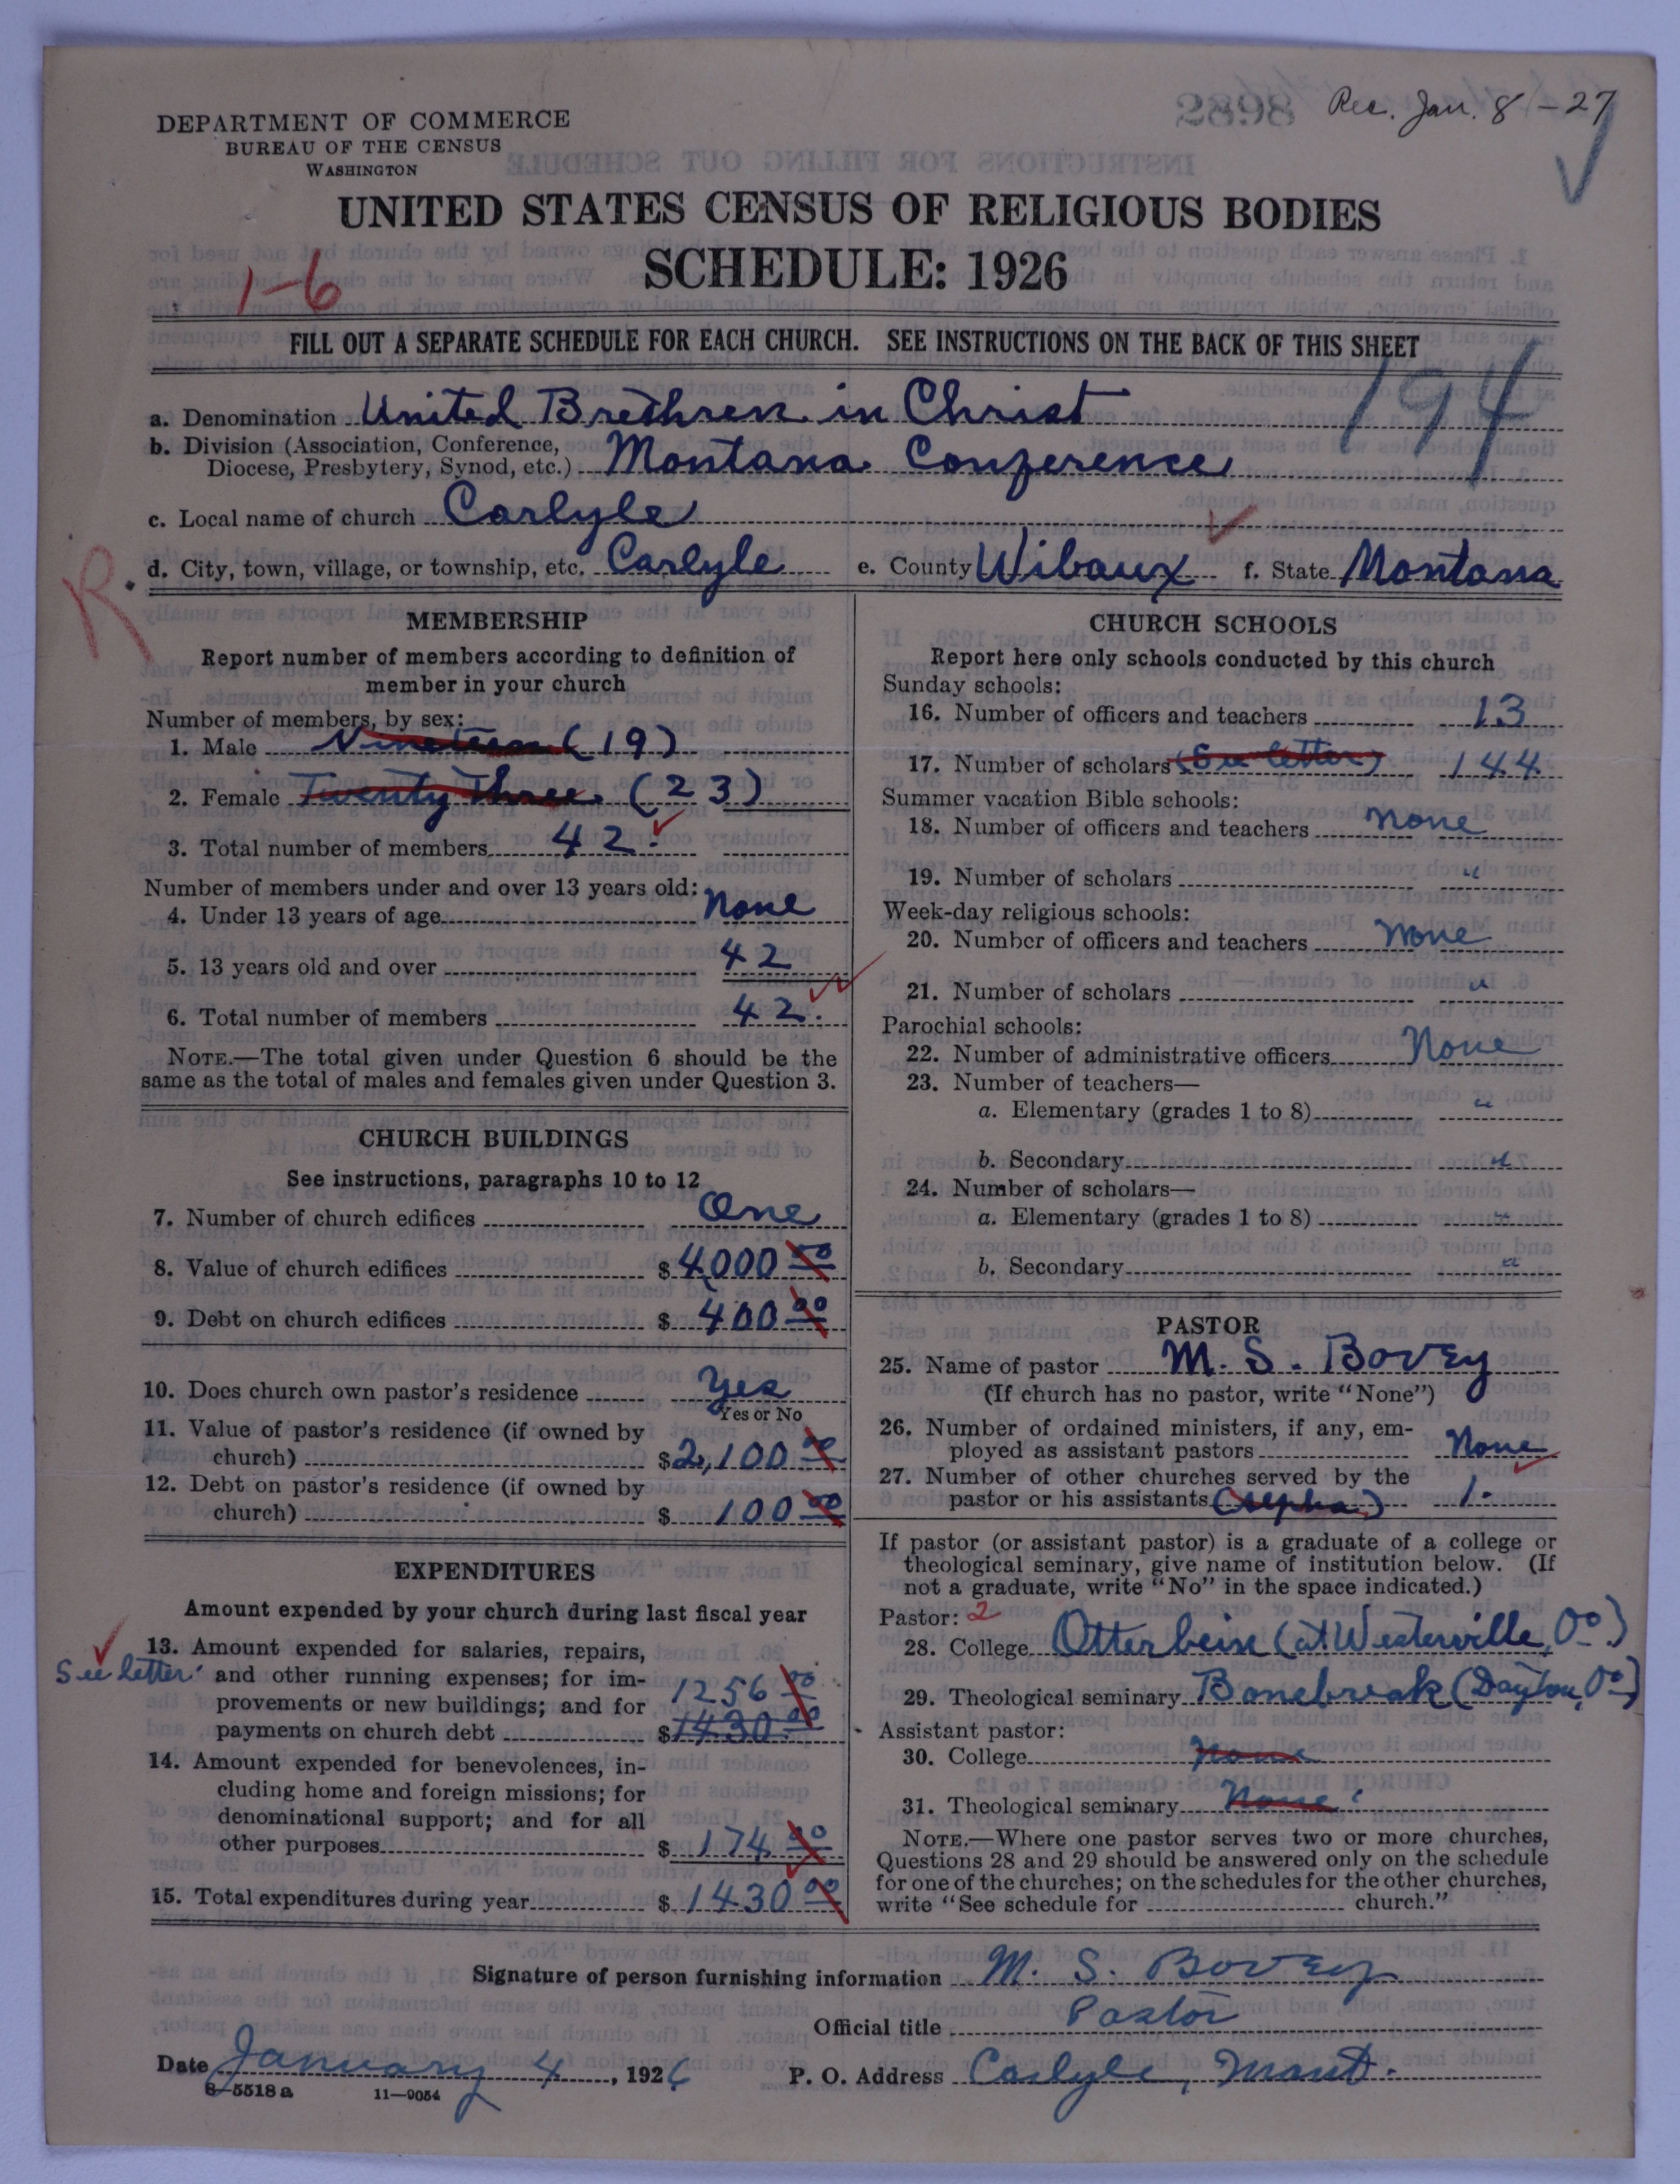 8982
Rec. Jan. 8 - 27
DEPARTMENT OF COMMERCE
BUREAU OF THE CENSUS
WASHINGTON
UNITED STATES CENSUS OF RELIGIOUS BODIES
SCHEDULE: 1926
1-6
FILL OUT A SEPARATE SCHEDULE FOR EACH CHURCH. SEE INSTRUCTIONS ON THE BACK OF THIS SHEET
194
a. Denomination United Brethren in Christ
b. Division (Association, Conference,
Diocese, Presbytery, Synod, etc.) Montana Conference
c. Local name of church Carlyle
d. City, town, village, or township, etc. Carlyle e. County Wibaux f. State Montana
R.
MEMBERSHIP
Report number of members according to definition of
member in your church
Number of members, by sex:
1. Male Nineteen (19)
2. Female Twenty Three (23)
3. Total number of members 42.
Number of members under and over 13 years old:
4. Under 13 years of age None
5. 13 years old and over 42
6. Total number of members 42.
NOTE.—The total given under Question 6 should be the
same as the total of males and females given under Question 3.
CHURCH BUILDINGS
See instructions, paragraphs 10 to 12
7. Number of church edifices One
8. Value of church edifices $ 4,000 00
9. Debt on church edifices $ 400 00
10. Does church own pastor's residence Yes
Yes or No
11. Value of pastor's residence (if owned by
church) $ 2,100 00
12. Debt on pastor's residence (if owned by
church) $ 100 00
EXPENDITURES
Amount expended by your church during last fiscal year
13. Amount expended for salaries, repairs,
See letter and other running expenses; for im-
provements or new buildings; and for 1256 00
payments on church debt $ 1430 00
14. Amount expended for benevolences, in-
cluding home and foreign missions; for
denominational support; and for all
other purposes $ 174 00
15. Total expenditures during year $ 1430 00
CHURCH SCHOOLS
Report here only schools conducted by this church
Sunday schools:
16. Number of officers and teachers 13
17. Number of scholars (See letter) 144
Summer vacation Bible schools:
18. Number of officers and teachers None
19. Number of scholars "
Week-day religious schools:
20. Number of officers and teachers None
21. Number of scholars "
Parochial schools:
22. Number of administrative officers None
23. Number of teachers—
a. Elementary (grades 1 to 8) "
b. Secondary "
24. Number of scholars—
a. Elementary (grades 1 to 8) "
b. Secondary "
PASTOR
25. Name of pastor M. S. Bovey
(If church has no pastor, write "None")
26. Number of ordained ministers, if any, em-
ployed as assistant pastors None
27. Number of other churches served by the
pastor or his assistants 1.
If pastor (or assistant pastor) is a graduate of a college or
theological seminary, give name of institution below. (If
not a graduate, write "No" in the space indicated.)
Pastor: 2
28. College Otterbein (at Westerville, O.)
29. Theological seminary Bonebreak (Dayton, O.)
Assistant pastor:
30. College None
31. Theological seminary None
NOTE.—Where one pastor serves two or more churches,
Questions 28 and 29 should be answered only on the schedule
for one of the churches; on the schedules for the other churches,
write "See schedule for church."
Signature of person furnishing information M. S. Bovey
Official title Pastor
Date January 4, 1926 P. O. Address Carlyle, Mont.
8-5518 a 11-9054